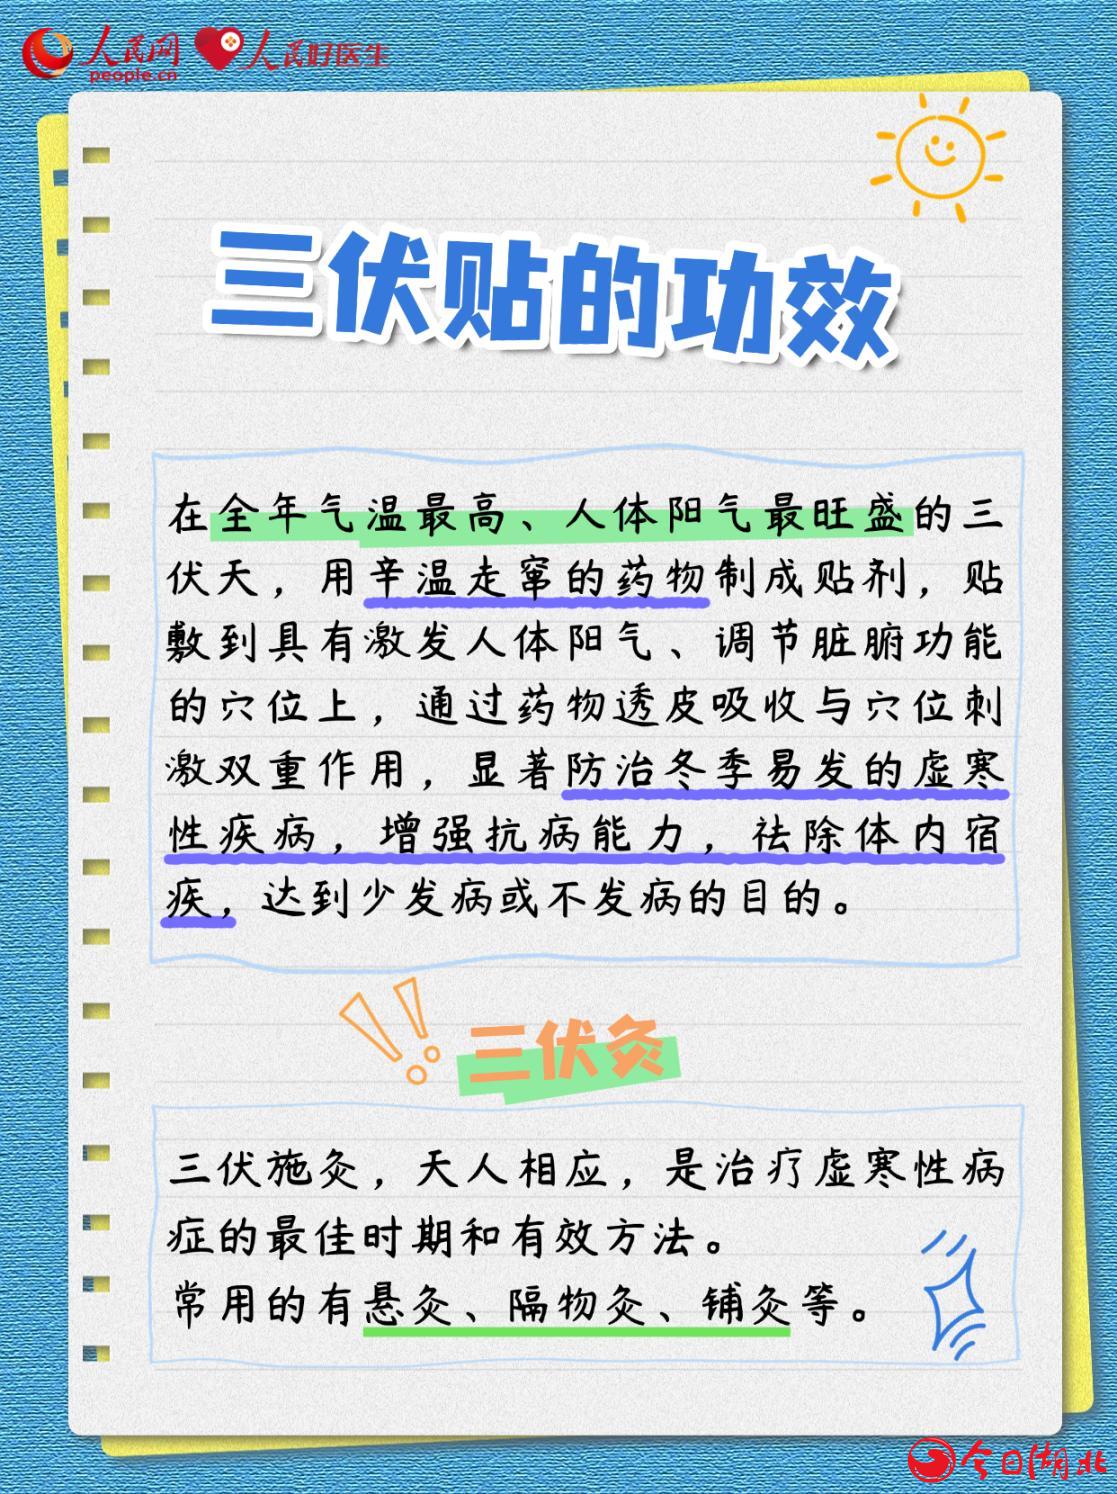 人民网
people.cn
人民好医生
三伏贴的功效
在全年气温最高、人体阳气最旺盛的三
伏天，用辛温走窜的药物制成贴剂，贴
敷到具有激发人体阳气、调节脏腑功能
的穴位上，通过药物透皮吸收与穴位刺
激双重作用，显著防治冬季易发的虚寒
性疾病，增强抗病能力，祛除体内宿
疾，达到少发病或不发病的目的。
三伏灸
三伏施灸，天人相应，是治疗虚寒性病
症的最佳时期和有效方法。
常用的有悬灸、隔物灸、铺灸等。
今日湖北